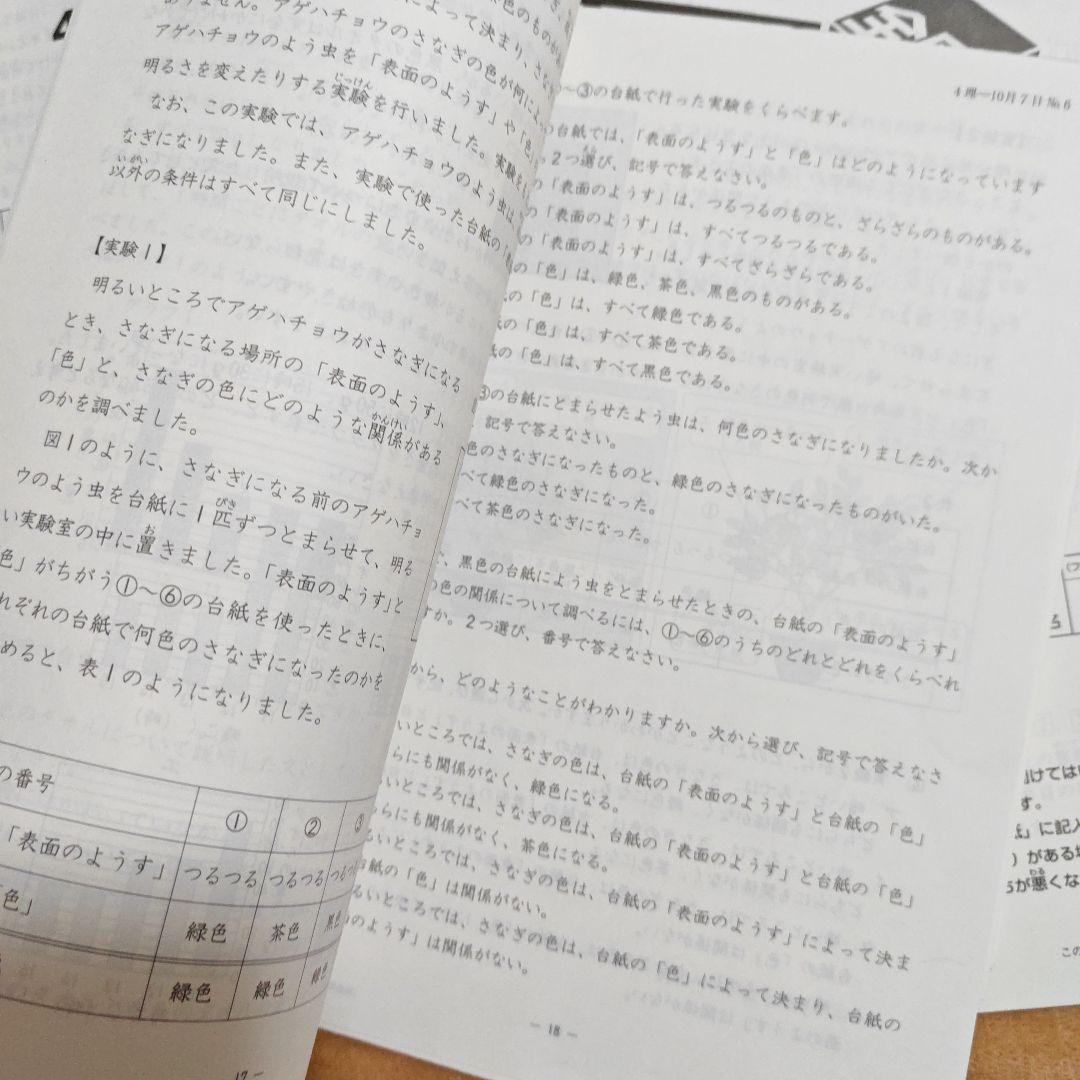 によって決まり、さな
ありません。アゲハチョウのさなぎの色が何によ
アゲハチョウのよう虫を「表面のようす」や「色」
明るさを変えたりする実験を行いました。実験
じっけん
なお、この実験では、アゲハチョウのよう虫は
なぎになりました。また、実験で使った台紙の「
いがい
以外の条件はすべて同じにしました。
【実験1】
明るいところでアゲハチョウがさなぎになる
とき、さなぎになる場所の「表面のようす」、
「色」と、さなぎの色にどのような関係がある
かんけい
のかを調べました。
図1のように、さなぎになる前のアゲハチョ
ウのよう虫を台紙に1匹ずつとまらせて、明る
びき
い実験室の中に置きました。「表面のようす」と
お
色」がちがう①～⑥の台紙を使ったときに、
れぞれの台紙で何色のさなぎになったのかを
めると、表1のようになりました。
の番号 ① ② ③
「表面のようす」 つるつる つるつる つるつ
色」 緑色 茶色 黒色
緑色 緑色 緑色
17 −
4理−10月7日 №6
～③の台紙で行った実験をくらべます。
の台紙では、「表面のようす」と「色」はどのようになっています
2つ選び、記号で答えなさい。
の「表面のようす」は、つるつるのものと、ざらざらのものがある。
の「表面のようす」は、すべてつるつるである。
の「表面のようす」は、すべてざらざらである。
の「色」は、緑色、茶色、黒色のものがある。
の「色」は、すべて緑色である。
紙の「色」は、すべて茶色である。
紙の「色」は、すべて黒色である。
③の台紙にとまらせたよう虫は、何色のさなぎになりましたか。次か
記号で答えなさい。
色のさなぎになったものと、緑色のさなぎになったものがいた。
べて緑色のさなぎになった。
べて茶色のさなぎになった。
、黒色の台紙によう虫をとまらせたときの、台紙の「表面のようす」
の色の関係について調べるには、①～⑥のうちのどれとどれをくらべれ
すか。2つ選び、番号で答えなさい。
から、どのようなことがわかりますか。次から選び、記号で答えなさ
いところでは、さなぎの色は、台紙の「表面のようす」と台紙の「色」
らにも関係がなく、緑色になる。
いところでは、さなぎの色は、台紙の「表面のようす」と台紙の「色」
らにも関係がなく、茶色になる。
るいところでは、さなぎの色は、台紙の「表面のようす」によって決ま
台紙の「色」は関係がない。
るいところでは、さなぎの色は、台紙の「色」によって決まり、台紙の
のようす」は関係がない。
− 18 −
けては
す。
」に記入
）がある
が悪くな
わる
この